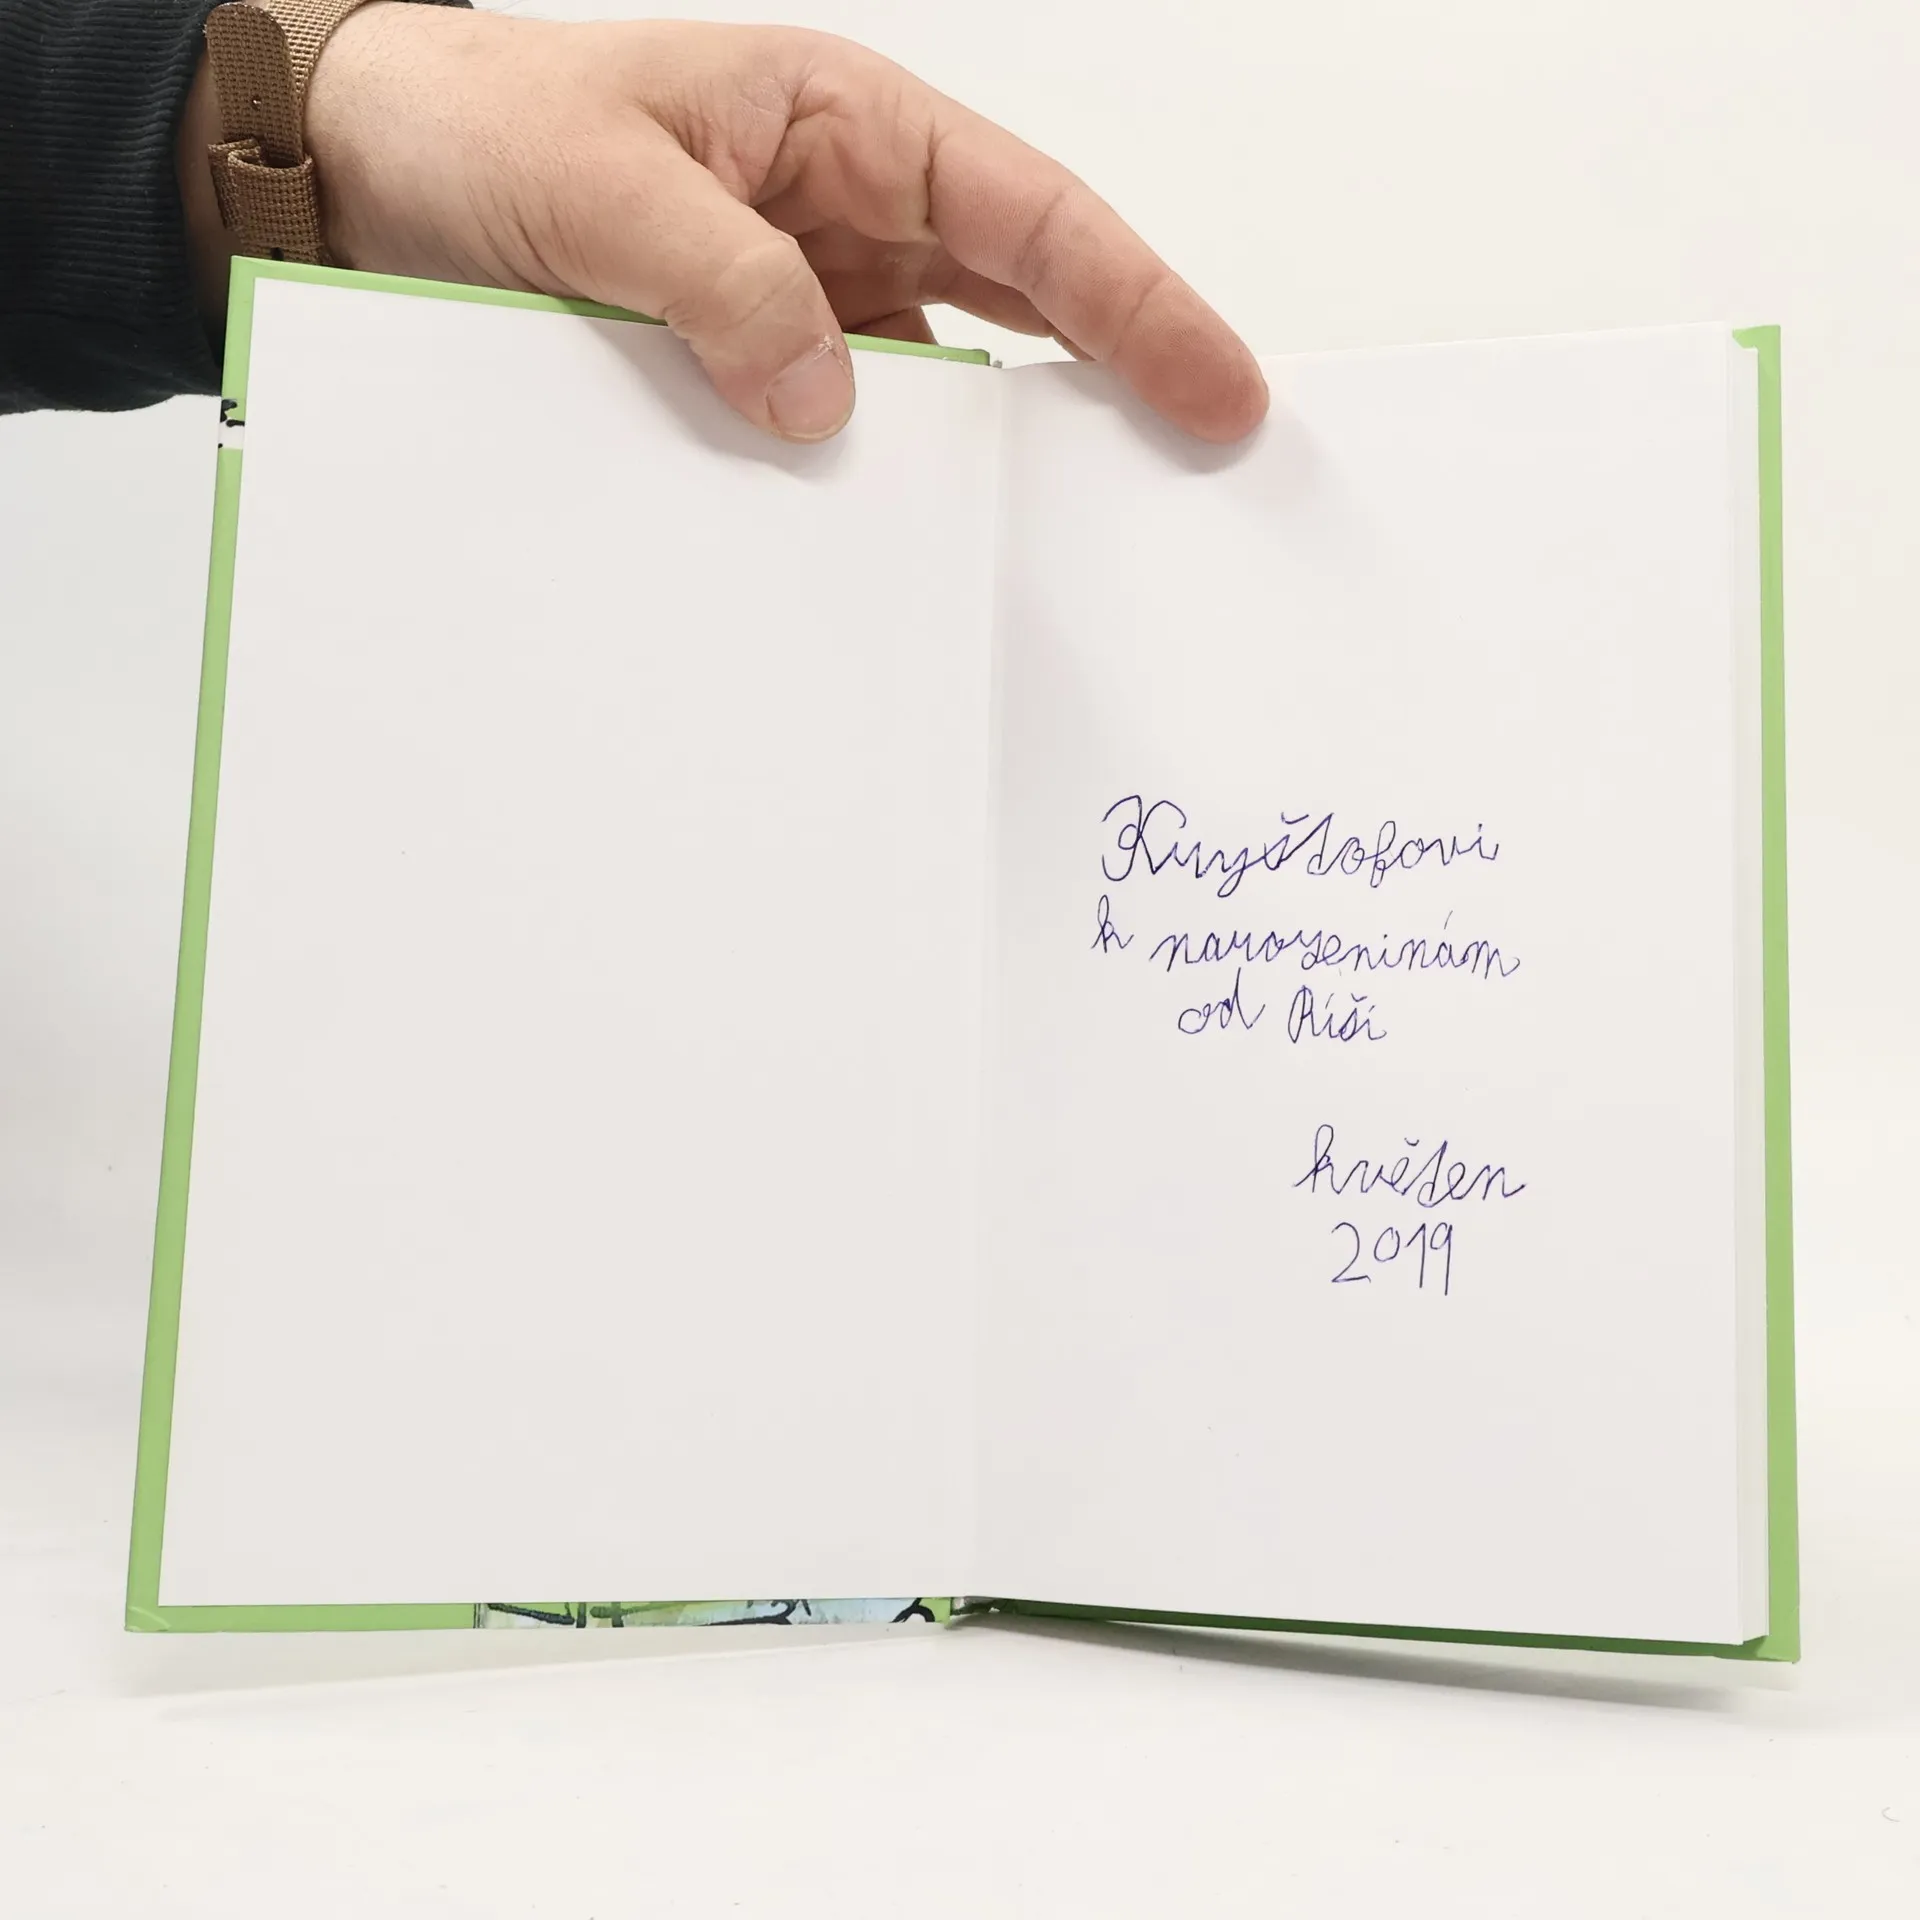 Kryštofovi
k narozeninám
od Ríši
květen
2019